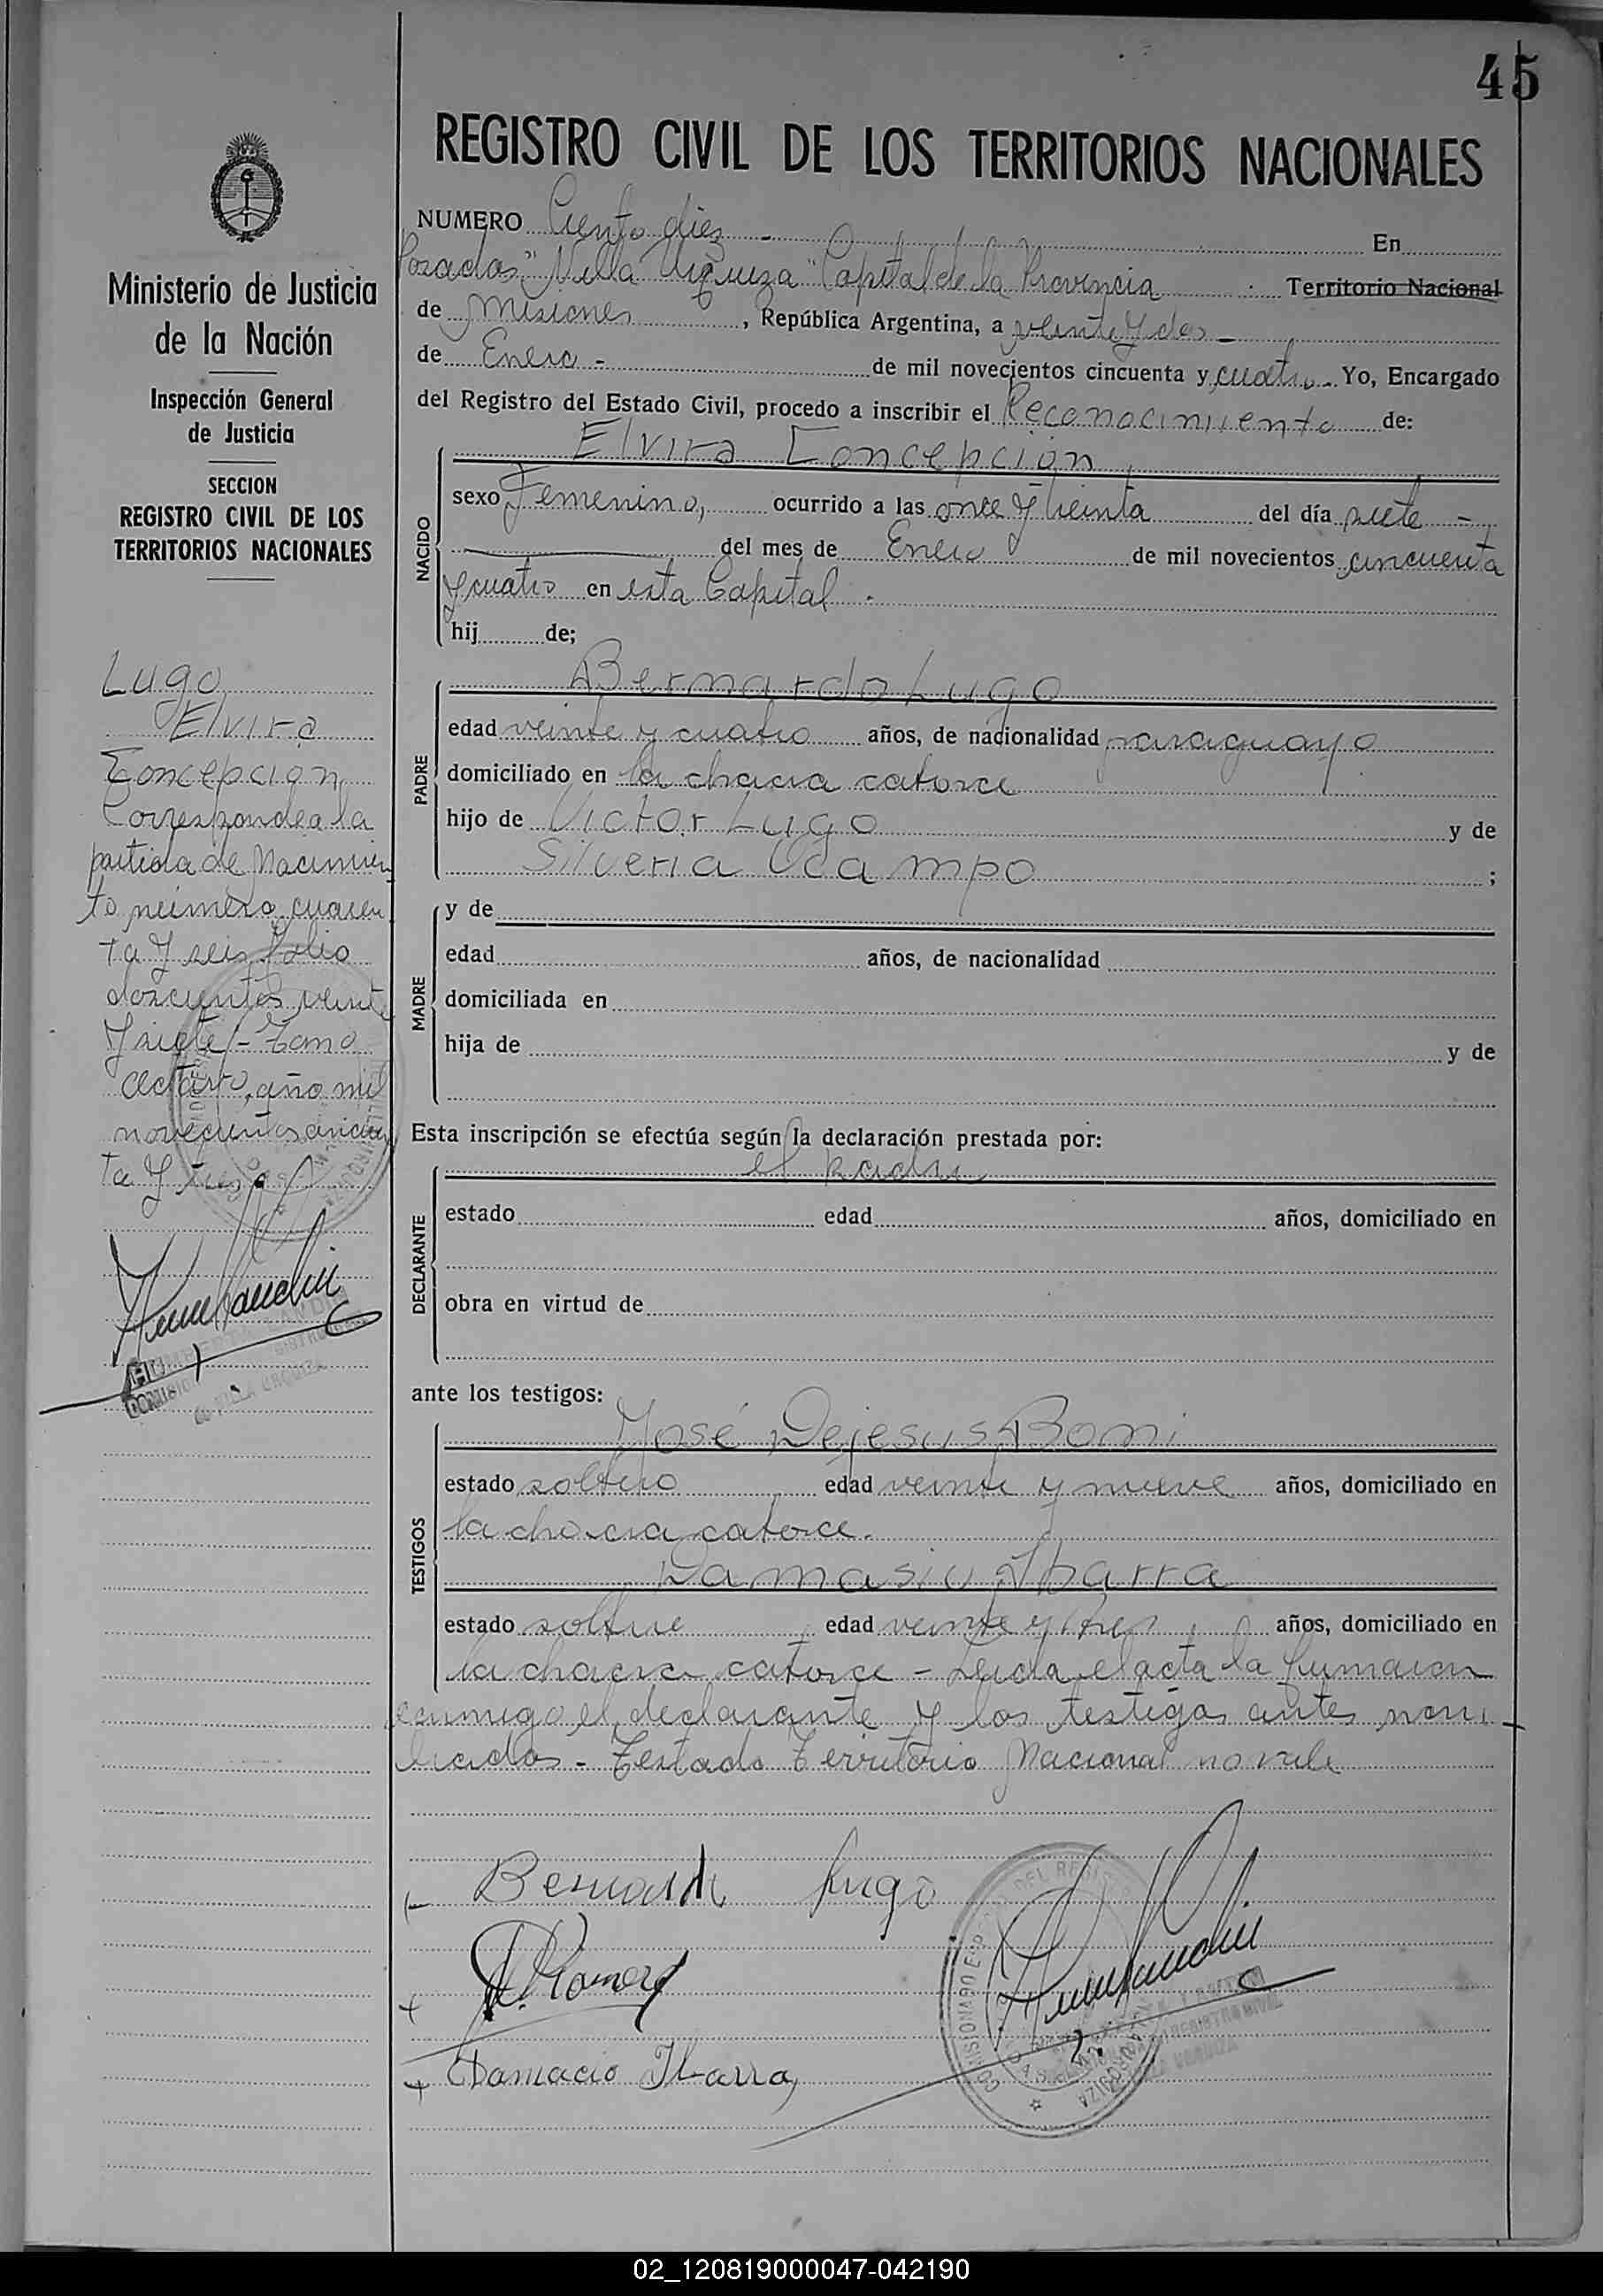 45
REGISTRO CIVIL DE LOS TERRITORIOS NACIONALES
Ministerio de Justicia
de la Nación
Inspección General
de Justicia
SECCION
REGISTRO CIVIL DE LOS
TERRITORIOS NACIONALES
Lugo
Elvira
Concepción
Corresponde a la
partida de Nacimien
to número cuaren
ta y seis folio
doscientos veinte
y siete - Tomo
año mil
novecientos cincuen
ta y tres
NUMERO Ciento diez - En
Posadas "Villa Urquiza" Capital de la Provincia Territorio Nacional
de Misiones, República Argentina, a veinte y dos -
de Enero - de mil novecientos cincuenta y cuatro - Yo, Encargado
del Registro del Estado Civil, procedo a inscribir el Reconocimiento de:
NACIDO
Elvira Concepción
sexo Femenino, ocurrido a las once y treinta del día siete -
del mes de Enero de mil novecientos cincuenta
y cuatro en esta Capital.
hij de;
PADRE
Bernardo Lugo
edad veinte y cuatro años, de nacionalidad paraguayo
domiciliado en la chacra catorce
hijo de Victor Lugo y de
Silveria Ocampo ;
MADRE
y de
edad años, de nacionalidad
domiciliada en
hija de y de
Esta inscripción se efectúa según la declaración prestada por:
DECLARANTE
el padre
estado edad años, domiciliado en
obra en virtud de
ante los testigos:
TESTIGOS
José Dejesus
estado soltero edad veinte y nueve años, domiciliado en
la chacra catorce.
Damasio Ibarra
estado soltero edad veinte y tres años, domiciliado en
la chacra catorce - Leida el acta la firmaron
conmigo el declarante y los testigos antes nom
brados - Testado Territorio Nacional no vale
Bernardo Lugo
Damacio Ibarra
02_120819000047-042190